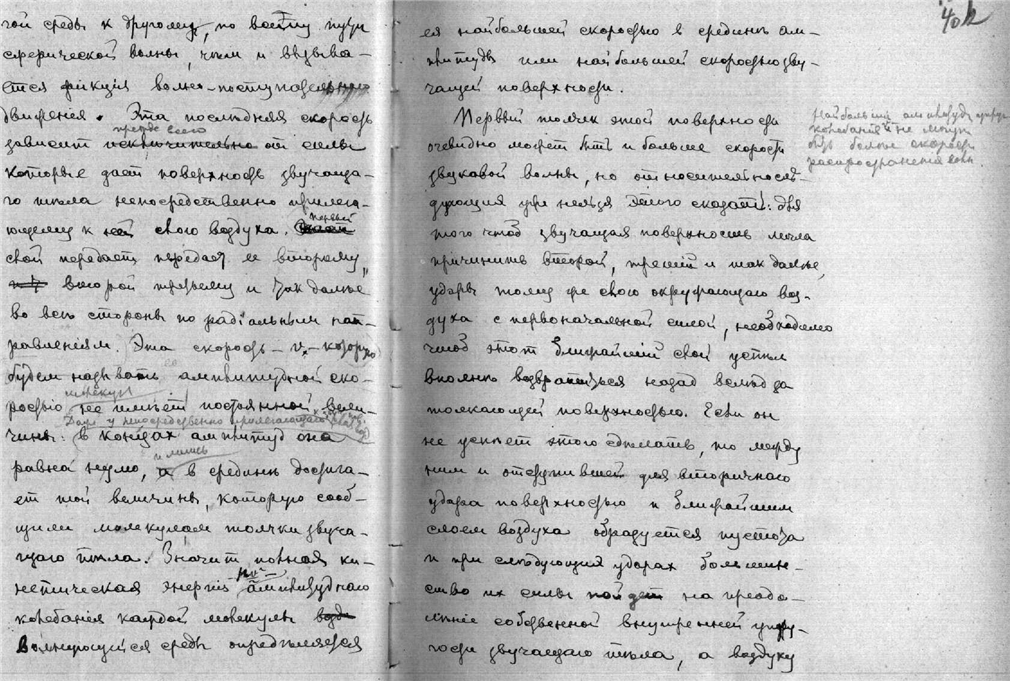 гой среды к другому, по всему пути
сферической волны, чѣм и вызыва-
ется фикція волно-поступательного
движенія. Эта послѣдняя скорость
прежде всего
зависит исключительно от силы
которые дает поверхность звучаща-
го тѣла непосредственно прилега-
ющему к ней слою воздуха.
первый
слой передаст передает ее второму,
второй третьему и так далѣе
во всѣ стороны по радіальным нап-
равленіям. Эта скорость - v - которую
будем называть амплитудной ско-
молекул
ростью не имѣет постоянной вели-
Даже у непосредственно прилегающаго
чины: в концах амплитуд она
и лишь
равна нулю, а в срединѣ достига-
ет той величины, которую сооб-
щили молекулам толчки звуча-
щаго тѣла. Значит полная ки-
нетическая энергія амплитуднаго
колебанія каждой молекулы
волнующейся среды опредѣляется
40
ея наибольшей скоростью в срединѣ ам-
плитуды или наибольшей скоростью зву-
чащей поверхности.
Первый толчек этой поверхности
очевидно может быть и больше скорости
звуковой волны, но относительно послѣ-
дующих уже нельзя этого сказать: для
того чтоб звучащая поверхность могла
причинить второй, третій и так далѣе,
удары тому же слою окружающаго воз-
духа с первоначальной силой, необходимо
чтоб этот ближайшій слой успѣл
вполнѣ возвратиться назад вслѣд за
толкающей поверхностью. Если он
не успѣет этого сдѣлать, то между
ним и отступившей для вторичнаго
удара поверхностью и ближайшим
слоем воздуха образуется пустота
и при слѣдующих ударах большин-
ство их силы пойдет на преодо-
лѣніе собственной внутренней упру-
гости звучащаго тѣла, а воздуху
Наибольшая амплитуда
колебаній не может
быть больше скорости
распространенія волн.